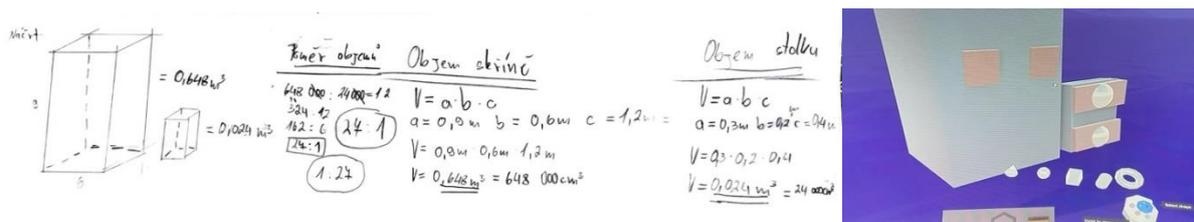 Náčrt
= 0,648m³
= 0,024 m³
Poměr objemů
648 000 : 24000 = 12
324 : 12
162 : 6
27:1
27 : 1
1 : 27
Objem skříně
V = a · b · c
a = 0,9m b = 0,6m c = 1,2m =
V = 0,9m · 0,6m · 1,2m
V = 0,648m³ = 648 000cm³
Objem stolku
V = a · b · c
a = 0,3m b = 0,2 c = 0,4m
V = 0,3 · 0,2 · 0,4
V = 0,024 m³ = 24 000cm³